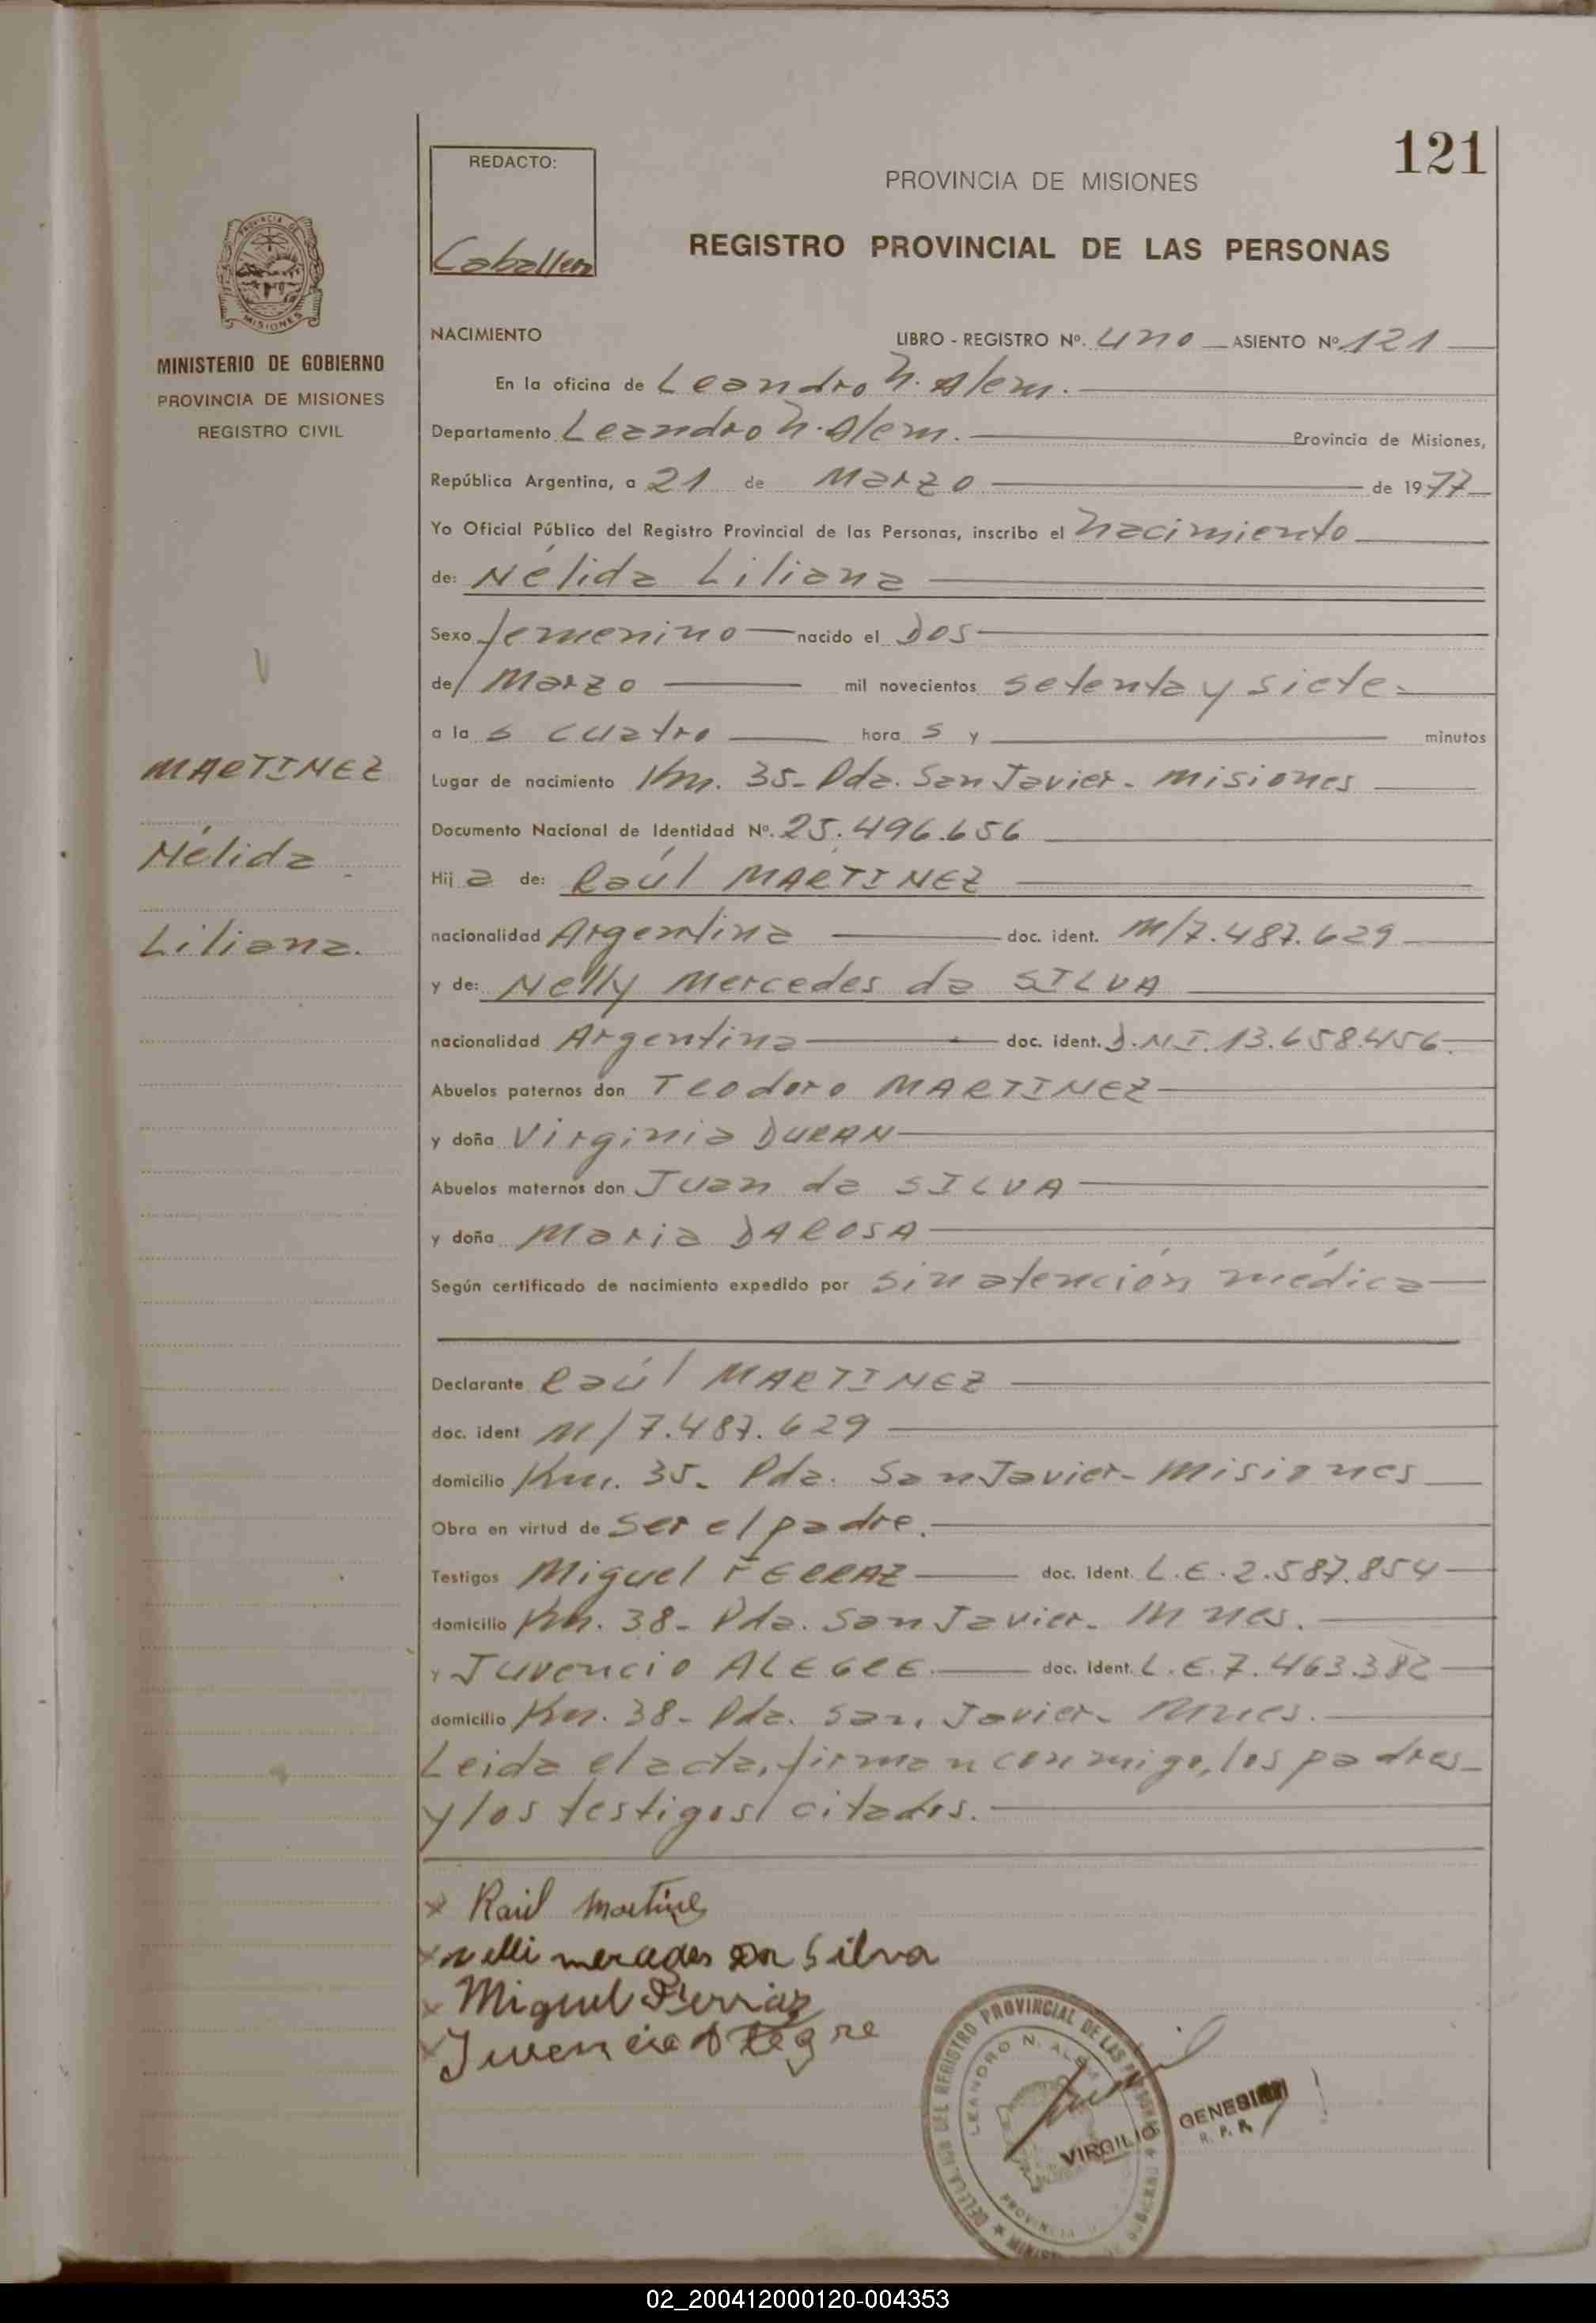 121
REDACTO:
PROVINCIA DE MISIONES
REGISTRO PROVINCIAL DE LAS PERSONAS
PROVINCIA DE
MISIONES
MINISTERIO DE GOBIERNO
PROVINCIA DE MISIONES
REGISTRO CIVIL
NACIMIENTO LIBRO - REGISTRO Nº. uno ASIENTO Nº 121
En la oficina de Leandro N. Alem.
Departamento Leandro N. Alem. Provincia de Misiones,
República Argentina, a 21 de Marzo de 1977
Yo Oficial Público del Registro Provincial de las Personas, inscribo el nacimiento
de: Nélida Liliana
Sexo femenino nacido el Dos
de Marzo mil novecientos setenta y siete
a la s cuatro hora s y minutos
MARTINEZ
Nélida
Liliana.
Lugar de nacimiento Km. 35- Pda. San Javier- Misiones
Documento Nacional de Identidad Nº. 25.496.656
Hij a de: Raúl MARTINEZ
nacionalidad Argentina doc. ident. M/7.487.629
y de: Nelly Mercedes da SILVA
nacionalidad Argentina doc. ident. D.N.I. 13.658.456.
Abuelos paternos don Teodoro MARTINEZ
y doña Virginia DURAN
Abuelos maternos don Juan da SILVA
y doña Maria DAROSA
Según certificado de nacimiento expedido por sin atención médica
Declarante Raúl MARTINEZ
doc. ident M/7.487.629
domicilio Km. 35- Pda. San Javier- Misiones
Obra en virtud de ser el padre.
Testigos Miguel FERRAZ doc. Ident. L.E. 2.587.854
domicilio Km. 38- Pda. San Javier- Mnes.
y Juvencio ALEGRE doc. Ident. L.E. 7.463.382
domicilio Km. 38- Pda. San Javier- Mnes.
Leida el acta, firman conmigo, los padres
y los testigos citados.
x Raúl Martinez
x nelli mercedes Da Silva
x Miguel Ferraz
x Juvencio Alegre
DEL REGISTRO PROVINCIAL DE LAS PERSONAS
LEANDRO N. ALEM
VIRGILIO
R. P. P.
02_200412000120-004353